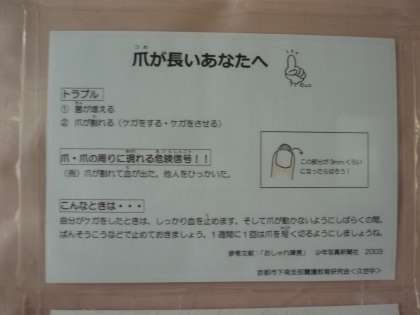 爪が長いあなたへ
トラブル
① 菌が増える
② 爪が割れる(ケガをする・ケガをさせる)
爪・爪の周りに現れる危険信号!!
(例)爪が割れて血が出た。他人をひっかいた。
この部分が3mmくらい
になったら切ろう!
こんなときは・・・
自分がケガをしたときは、しっかり血を止めます。そして爪が動かないようにしばらくの間、
ばんそうこうなどで止めておきましょう。1週間に1回は爪を短く切るようにしましょうね。
参考文献:「おしゃれ障害」 少年写真新聞社 2003
京都市下南支部養護教育研究会<久世中>